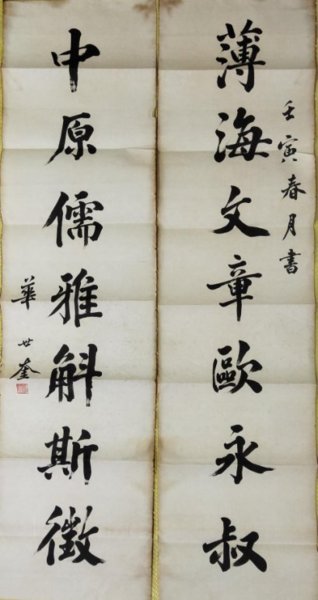 薄海文章歐永叔
壬寅春月書
中原儒雅斛斯徵
華世奎